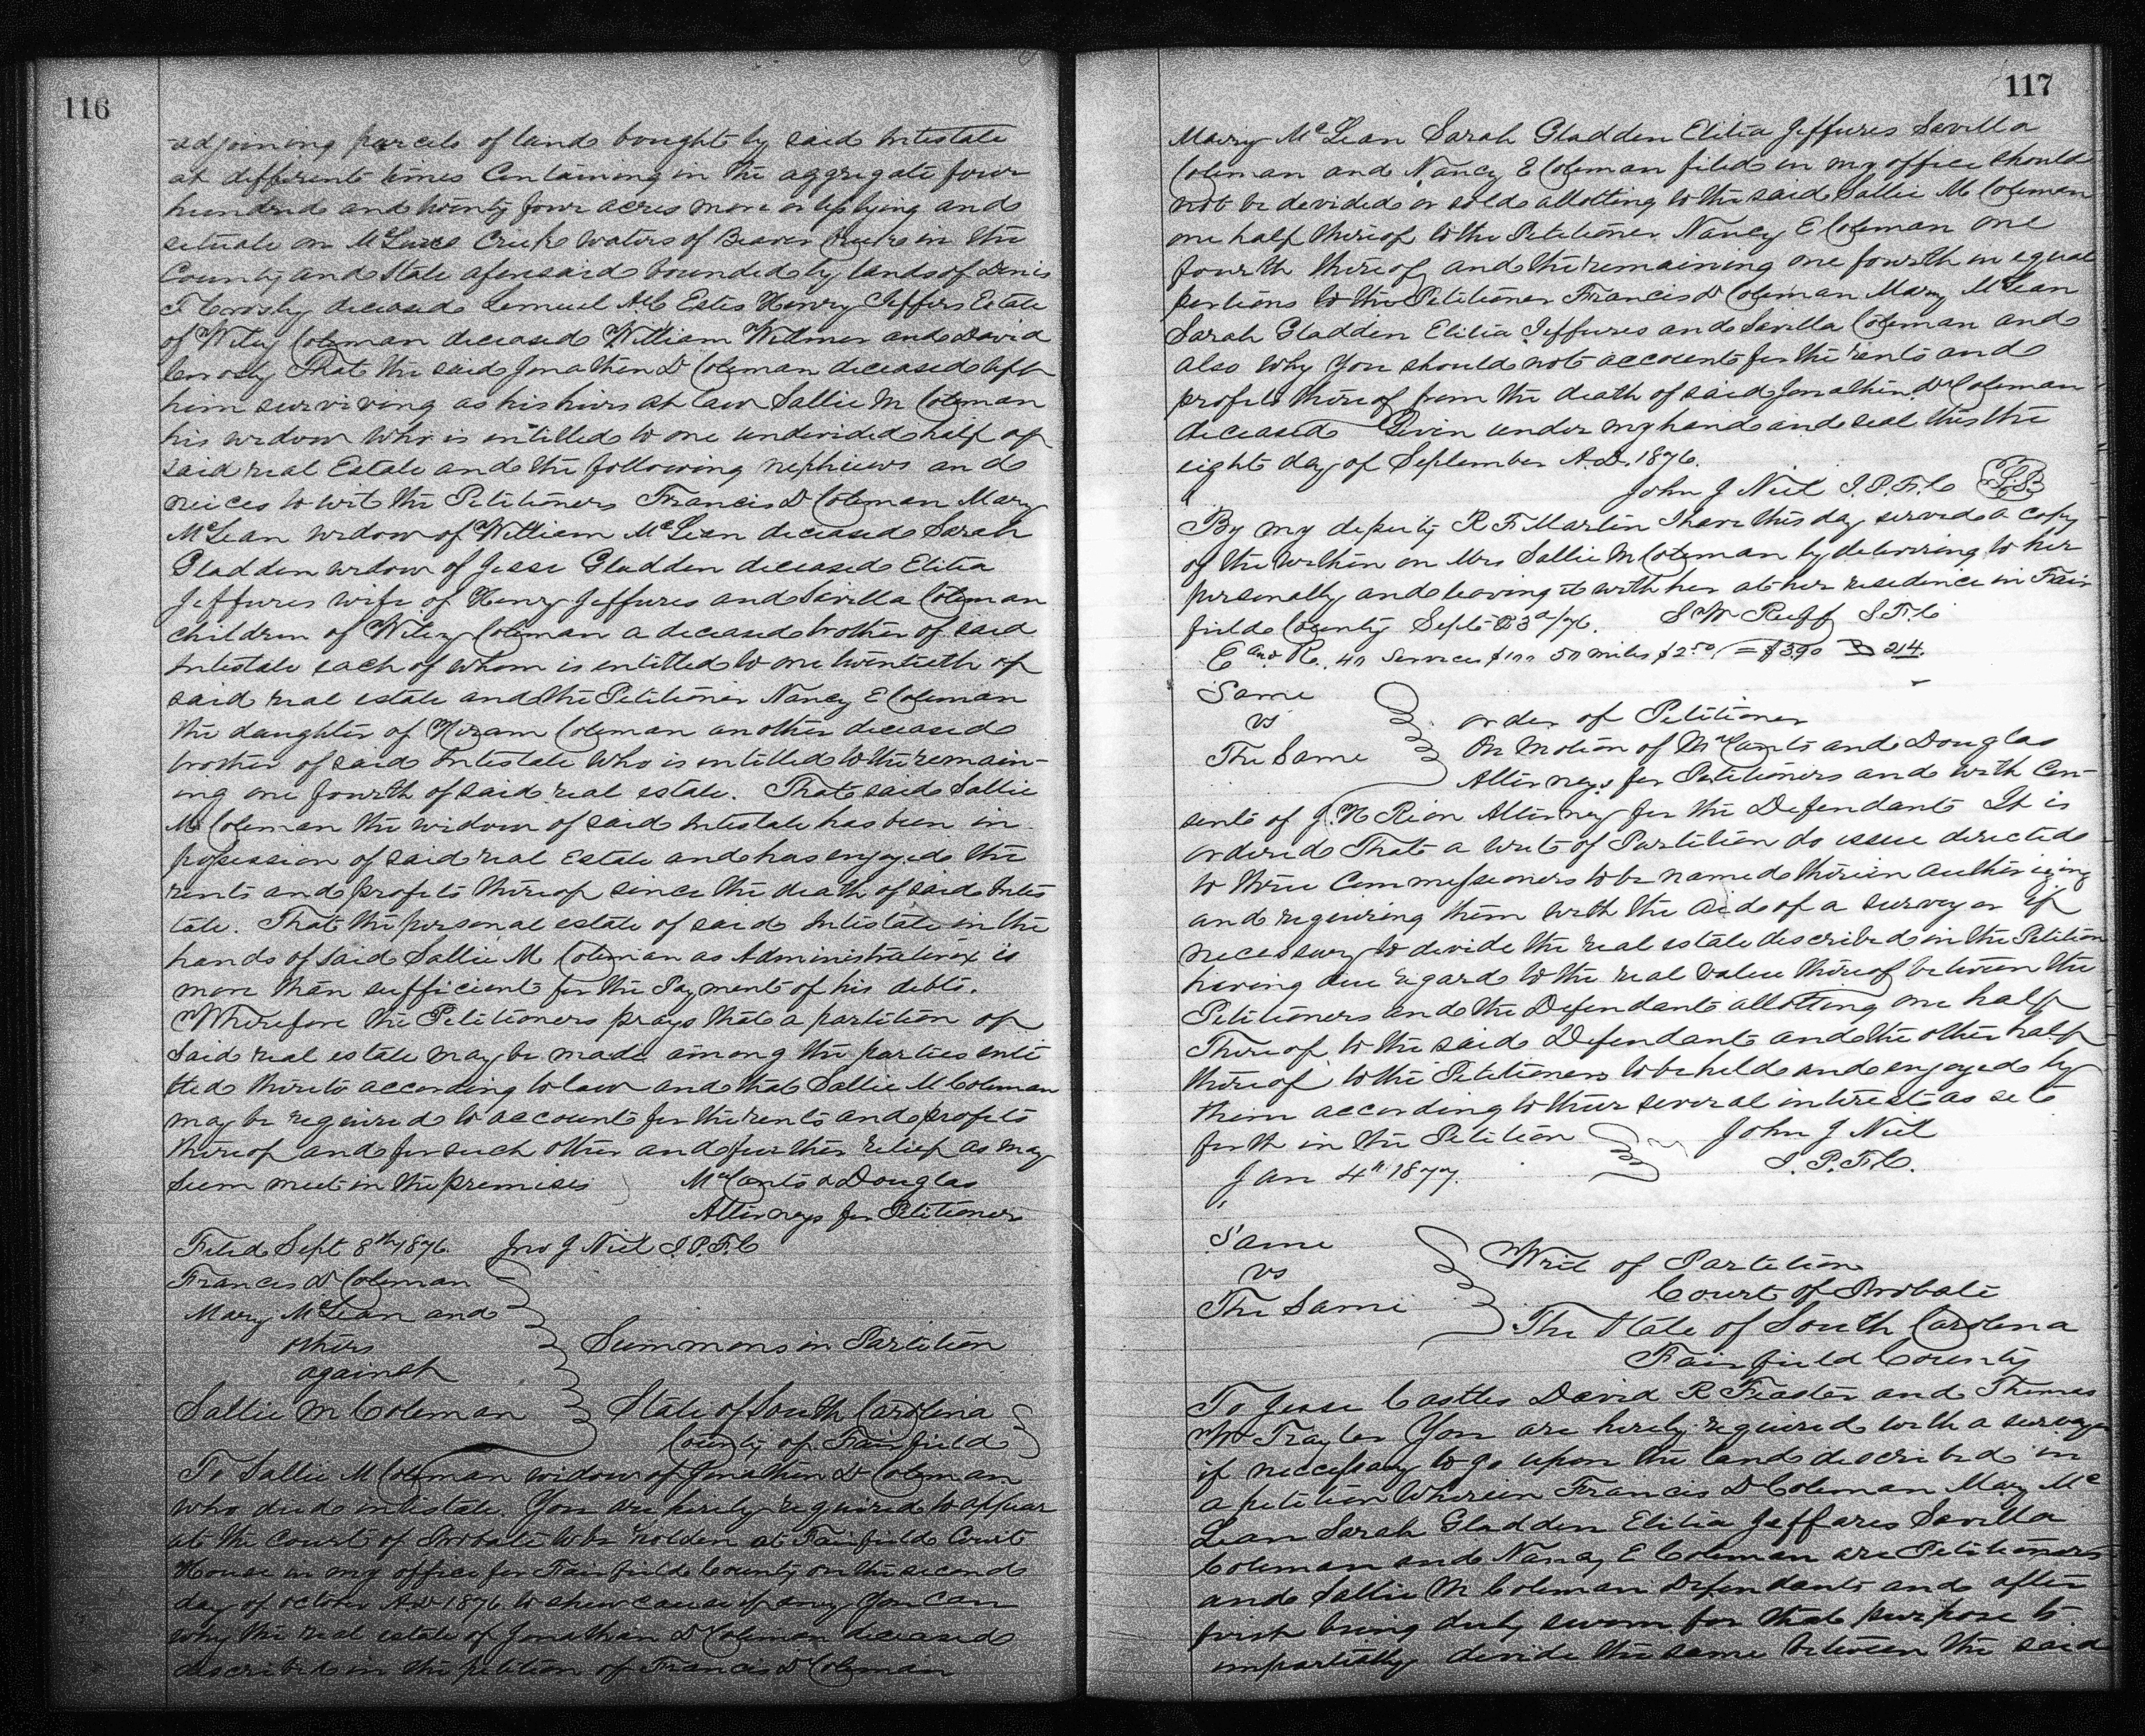 116
adjoining parcels of land bought by said Intestate
at different times Containing in the aggregate four
hundred and twenty four acres more or less lying and
situate on McLures Creek waters of Beaver Creek in the
County and State aforesaid bounded by lands of
T Crosby deceased Lemuel Estes Henry Jeffers Estate
of Wiley Coleman deceased William Widener and David
Crosby That the said Jonathan D Coleman deceased left
him surviving as his heirs at law Sallie M Coleman
his widow who is entitled to one undivided half of
said real Estate and the following nephews and
neices to wit the Petitioners Francis D Coleman Mary
McLean widow of William McLean deceased Sarah
Gladden widow of Jesse Gladden deceased Elitia
Jeffures wife of Henry Jeffures and Savilla Coleman
children of Wiley Coleman a deceased brother of said
Intestate each of whom is entitled to one twentieth of
said real estate and the Petitioner Nancy E Coleman
the daughter of Hiram Coleman another deceased
brother of said Intestate who is entitled to the remain-
ing one fourth of said real estate. That said Sallie
M Coleman the widow of said Intestate has been in
possession of said real Estate and has enjoyed the
rents and profits thereof since the death of said Intes
tate. That the personal estate of said Intestate in the
hands of said Sallie M Coleman as Administratrix is
more than sufficient for the Payment of his debts.
Wherefore the Petitioners prays that a partition of
said real estate may be made among the parties enti
tled thereto according to law and that Sallie M Coleman
may be required to account for the rents and profits
thereof and for such other and further relief as may
seem meet in the premises McCants & Douglas
Attorneys for Petitioners
Filed Sept 8th 1876. Jno J Neil J.P.F.C
Francis D Coleman
Mary McLean and
others
against
Summons in Partition
Sallie M Coleman State of South Carolina
County of Fairfield
To Sallie M Coleman widow of Jonathan D Coleman
who died intestate. You are hereby required to appear
at the Court of Probate to be holden at Fairfield Court
House in my office for Fairfield County on the second
day of October AD 1876. to shew cause if any you can
why the real estate of Jonathan D Coleman deceased
described in the petition of Francis D Coleman
117
Mary McLean Sarah Gladden Elitia Jeffures Savilla
Coleman and Nancy E Coleman filed in my office should
not be devided or sold allotting to the said Sallie M Coleman
one half thereof to the Petitioner Nancy E Coleman one
fourth thereof and the remaining one fourth in equal
portions to the Petitioner Francis D Coleman Mary McLean
Sarah Gladden Elitia Jeffures and Savilla Coleman and
also why you should not account for the rents and
profits thereof from the death of said Jonathan D Coleman
deceased Given under my hand and seal this the
eight day of September A.D. 1876.
John J Neil J.P.F.C L.S.
By my deputy R F Martin I have this day served a copy
of the within on Mrs Sallie M Coleman by delivering to her
personally and leaving it with her at her residence in Fair
field County Sept 23d/76. S W Ruff S.F.C
E and R. 40 Services $1.00 50 miles $2.50 = $3.90 214.
Same
vs
The Same
order of Petitioner
On Motion of McCants and Douglas
Attorneys for Petitioners and with Con-
sent of J. H Rion Attorney for the Defendant It is
ordered That a writ of Partition do issue directed
to three Commissioners to be named therein authorizing
and requiring them with the aid of a surveyor if
necessary to divide the real estate described in the Petition
having due regard to the real value thereof between the
Petitioners and the Defendant allotting one half
Thereof to the said Defendant and the other half
thereof to the Petitioners to be held and enjoyed by
them according to their several interest as set
forth in the Petition John J Neil
Jan 4th 1877. J.P.F.C.
Same
vs
The Same
Writ of Partition
Court of Probate
The State of South Carolina
Fairfield County
To Jesse Castles David R Feaster and Thomas
W Traylor You are hereby required with a surveyor
if neccessary to go upon the land described in
a petition Wherein Francis D Coleman Mary Mc
Lean Sarah Gladden Elitia Jeffares Savilla
Coleman and Nancy E Coleman are Petitioners
and Sallie M Coleman Defendant and after
first being duly sworn for that purpose to
impartially devide the same between the said